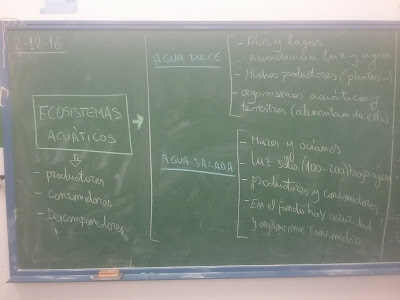 2-12-16
ECOSISTEMAS
ACUÁTICOS
- productores
- consumidores
- Descomponedores
AGUA DULCE
- Ríos y lagos
- Abundancia luz y agua
- Muchos productores (plantas...)
- organismos acuáticos y
terrestres (alimentan de ella)
AGUA SALADA
- Mares y océanos
- Luz solo (100-200) bajo agua
- productores y consumidores
- En el fondo hay oscuridad
y organismos consumidores